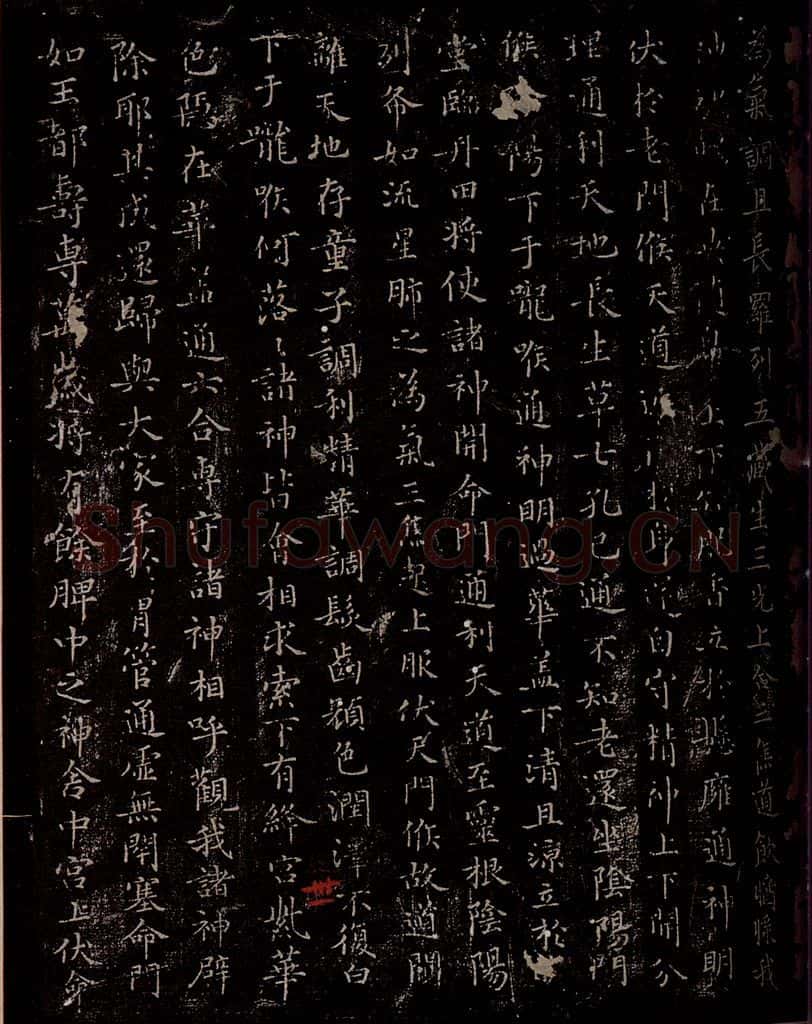 為氣調且長羅列五藏生三光上合三焦道飲醬漿我
神魂魄在中央隨鼻上下知肥香立於懸膺通神明
伏於老門候天道近在於身還自守精神上下開分
理通利天地長生草七孔已通不知老還坐陰陽門
候陰陽下于嚨喉通神明過華蓋下清且源立於
堂臨丹田將使諸神開命門通利天道至靈根陰陽
列布如流星肺之為氣三焦起上服伏天門候故道闚
離天地存童子調利精華調髮齒顏色潤澤不復白
下于嚨喉何落〻諸神皆會相求索下有絳宮紫華
色隱在華蓋通六合專守諸神相呼觀我諸神辟
除耶其成還歸與大家至於胃管通虛無閉塞命門
如玉都壽專萬歲將有餘脾中之神舍中宮上伏命
Shufawang.CN